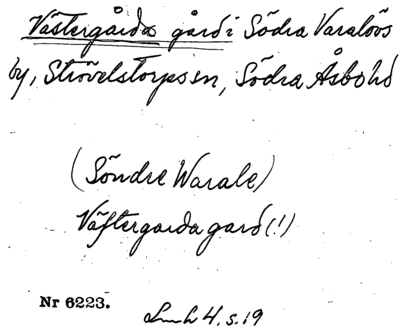 Västergårda gård i Södra Varalövs
by, Strövelstorps sn, Södra Åsbo hd
(Söndre Warale)
Väftergarda gard (!)
Nr 6223.
4. s. 19